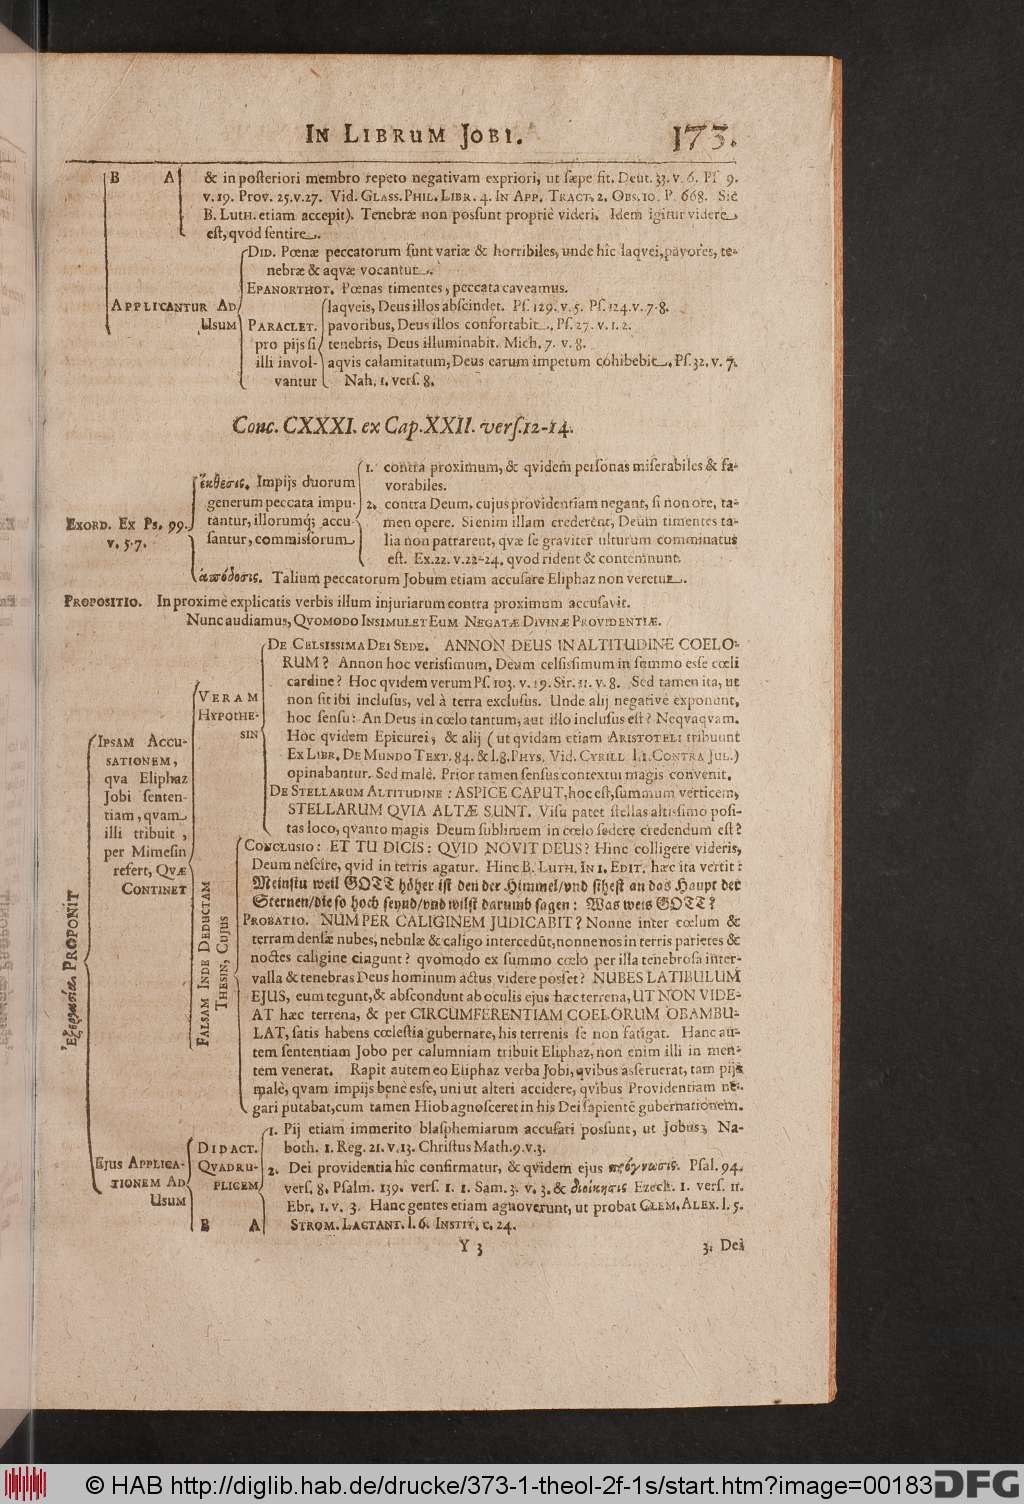 IN LIBRUM JOBI. 173.
B A & in posteriori membro repeto negativam expriori, ut sæpe fit. Deut. 33. v. 6. Ps. 9.
v. 19. Prov. 25. v. 27. Vid. GLASS. PHIL. LIBR. 4. IN APP. TRACT. 2. OBS. 10. P. 668. Sic
B. LUTH. etiam accepit). Tenebræ non possunt propriè videri. Idem igitur videre
est, qvod sentire.
DID. Pœnæ peccatorum sunt variæ & horribiles, unde hîc laqvei, pavores, te-
nebræ & aqvæ vocantur.
EPANORTHOT. Pœnas timentes, peccata caveamus.
APPLICANTUR AD laqveis, Deus illos abscindet. Ps. 129. v. 5. Ps. 124. v. 7. 8.
USUM PARACLET. pavoribus, Deus illos confortabit, Ps. 27. v. 1. 2.
pro pijs si tenebris, Deus illuminabit. Mich. 7. v. 8.
illi invol- aqvis calamitatum, Deus earum impetum cohibebit, Ps. 32. v. 7.
vantur Nah. 1. vers. 8.
Conc. CXXXI. ex Cap. XXII. vers. 12-14.
1. contra proximum, & qvidem personas miserabiles & fa-
ἔκθεσις. Impijs duorum vorabiles.
generum peccata impu- 2. contra Deum, cujus providentiam negant, si non ore, ta-
EXORD. EX PS. 99. tantur, illorumq; accu- men opere. Si enim illam crederent, Deum timentes ta-
v. 5. 7. santur, commissorum lia non patrarent, qvæ se graviter ulturum comminatus
est. Ex. 22. v. 22-24. qvod rident & contemnunt.
ἀπόδοσις. Talium peccatorum Jobum etiam accusare Eliphaz non veretur.
PROPOSITIO. In proximè explicatis verbis illum injuriarum contra proximum accusavit.
Nunc audiamus, QVOMODO INSIMULET EUM NEGATÆ DIVINÆ PROVIDENTIÆ.
DE CELSISSIMA DEI SEDE. ANNON DEUS IN ALTITUDINE COELO-
RUM? Annon hoc verissimum, Deum celsissimum in summo esse cœli
cardine? Hoc qvidem verum Ps. 103. v. 19. Sir. 11. v. 8. Sed tamen ita, ut
VERAM non sit ibi inclusus, vel à terra exclusus. Unde alij negativè exponunt,
HYPOTHE- hoc sensu: An Deus in cœlo tantum, aut illo inclusus est? Neqvaqvam.
SIN Hoc qvidem Epicurei; & alij (ut qvidam etiam ARISTOTELI tribuunt
IPSAM ACCU- EX LIBR. DE MUNDO TEXT. 84. & l. 8. PHYS. Vid. CYRILL l. 1. CONTRA JUL.)
SATIONEM, opinabantur. Sed malè. Prior tamen sensus contextui magis convenit.
qva Eliphaz DE STELLARUM ALTITUDINE: ASPICE CAPUT, hoc est, summum verticem,
Jobi senten- STELLARUM QVIA ALTÆ SUNT. Visu patet stellas altissimo posi-
tiam, qvam tas loco, qvanto magis Deum sublimem in cœlo sedere credendum est?
illi tribuit,
per Mimesin CONCLUSIO: ET TU DICIS: QVID NOVIT DEUS? Hinc colligere videris,
refert, QVÆ Deum nescire, qvid in terris agatur. Hinc B. LUTH. IN 1. EDIT. hæc ita vertit:
CONTINET Meinstu weil GOTT höher ist den der Himmel/und sihest an das Haupt der
Sternen/die so hoch seynd/und wilst darumb sagen: Was weis GOTT?
Ἐξεργασία PROPONIT
FALSAM INDE DEDUCTAM
THESIN, Cujus
PROBATIO. NUM PER CALIGINEM JUDICABIT? Nonne inter cœlum &
terram densæ nubes, nebulæ & caligo intercedũt, nonne nos in terris parietes &
noctes caligine cingunt? qvomodo ex summo cœlo per illa tenebrosa inter-
valla & tenebras Deus hominum actus videre posset? NUBES LATIBULUM
EJUS, eum tegunt, & abscondunt ab oculis ejus hæc terrena, UT NON VIDE-
AT hæc terrena, & per CIRCUMFERENTIAM COELORUM OBAMBU-
LAT, satis habens cœlestia gubernare, his terrenis se non fatigat. Hanc au-
tem sententiam Jobo per calumniam tribuit Eliphaz, non enim illi in men-
tem venerat. Rapit autem eo Eliphaz verba Jobi, qvibus asseruerat, tam pijs
malè, qvam impijs benè esse, uni ut alteri accidere, qvibus Providentiam ne-
gari putabat, cum tamen Hiob agnosceret in his Dei sapientẽ gubernationem.
1. Pij etiam immerito blasphemiarum accusari possunt, ut Jobus; Na-
DIDACT. both. 1. Reg. 21. v. 13. Christus Math. 9. v. 3.
EJUS APPLICA- QVADRU- 2. Dei providentia hîc confirmatur, & qvidem ejus πρόγνωσις. Psal. 94.
TIONEM AD PLICEM vers. 8. Psalm. 139. vers. 1. 1. Sam. 3. v. 3. & διοίκησις Ezech. 1. vers. 11.
USUM Ebr. 1. v. 3. Hanc gentes etiam agnoverunt, ut probat CLEM. ALEX. l. 5.
B A STROM. LACTANT. l. 6. INSTIT. c. 24.
Y 3 3. Dei
© HAB http://diglib.hab.de/drucke/373-1-theol-2f-1s/start.htm?image=00183 DFG